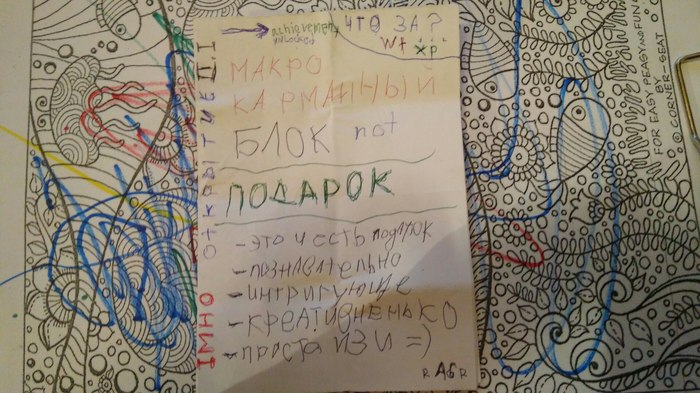 achievement
unlocked
ЧТО ЗА?
Wt
МАКРО
КАРМАННЫЙ
БЛОК not
ПОДАРОК
- это и есть подарок
- познавательно
- интригующе
- КРЕАТИВНЕНЬКО
- проста ИЗИ =)
R A6 R
IMHO
ОТКРЫТИЕ
FOR EASY PEASY AND FUN
BY
CORNER-SEAT